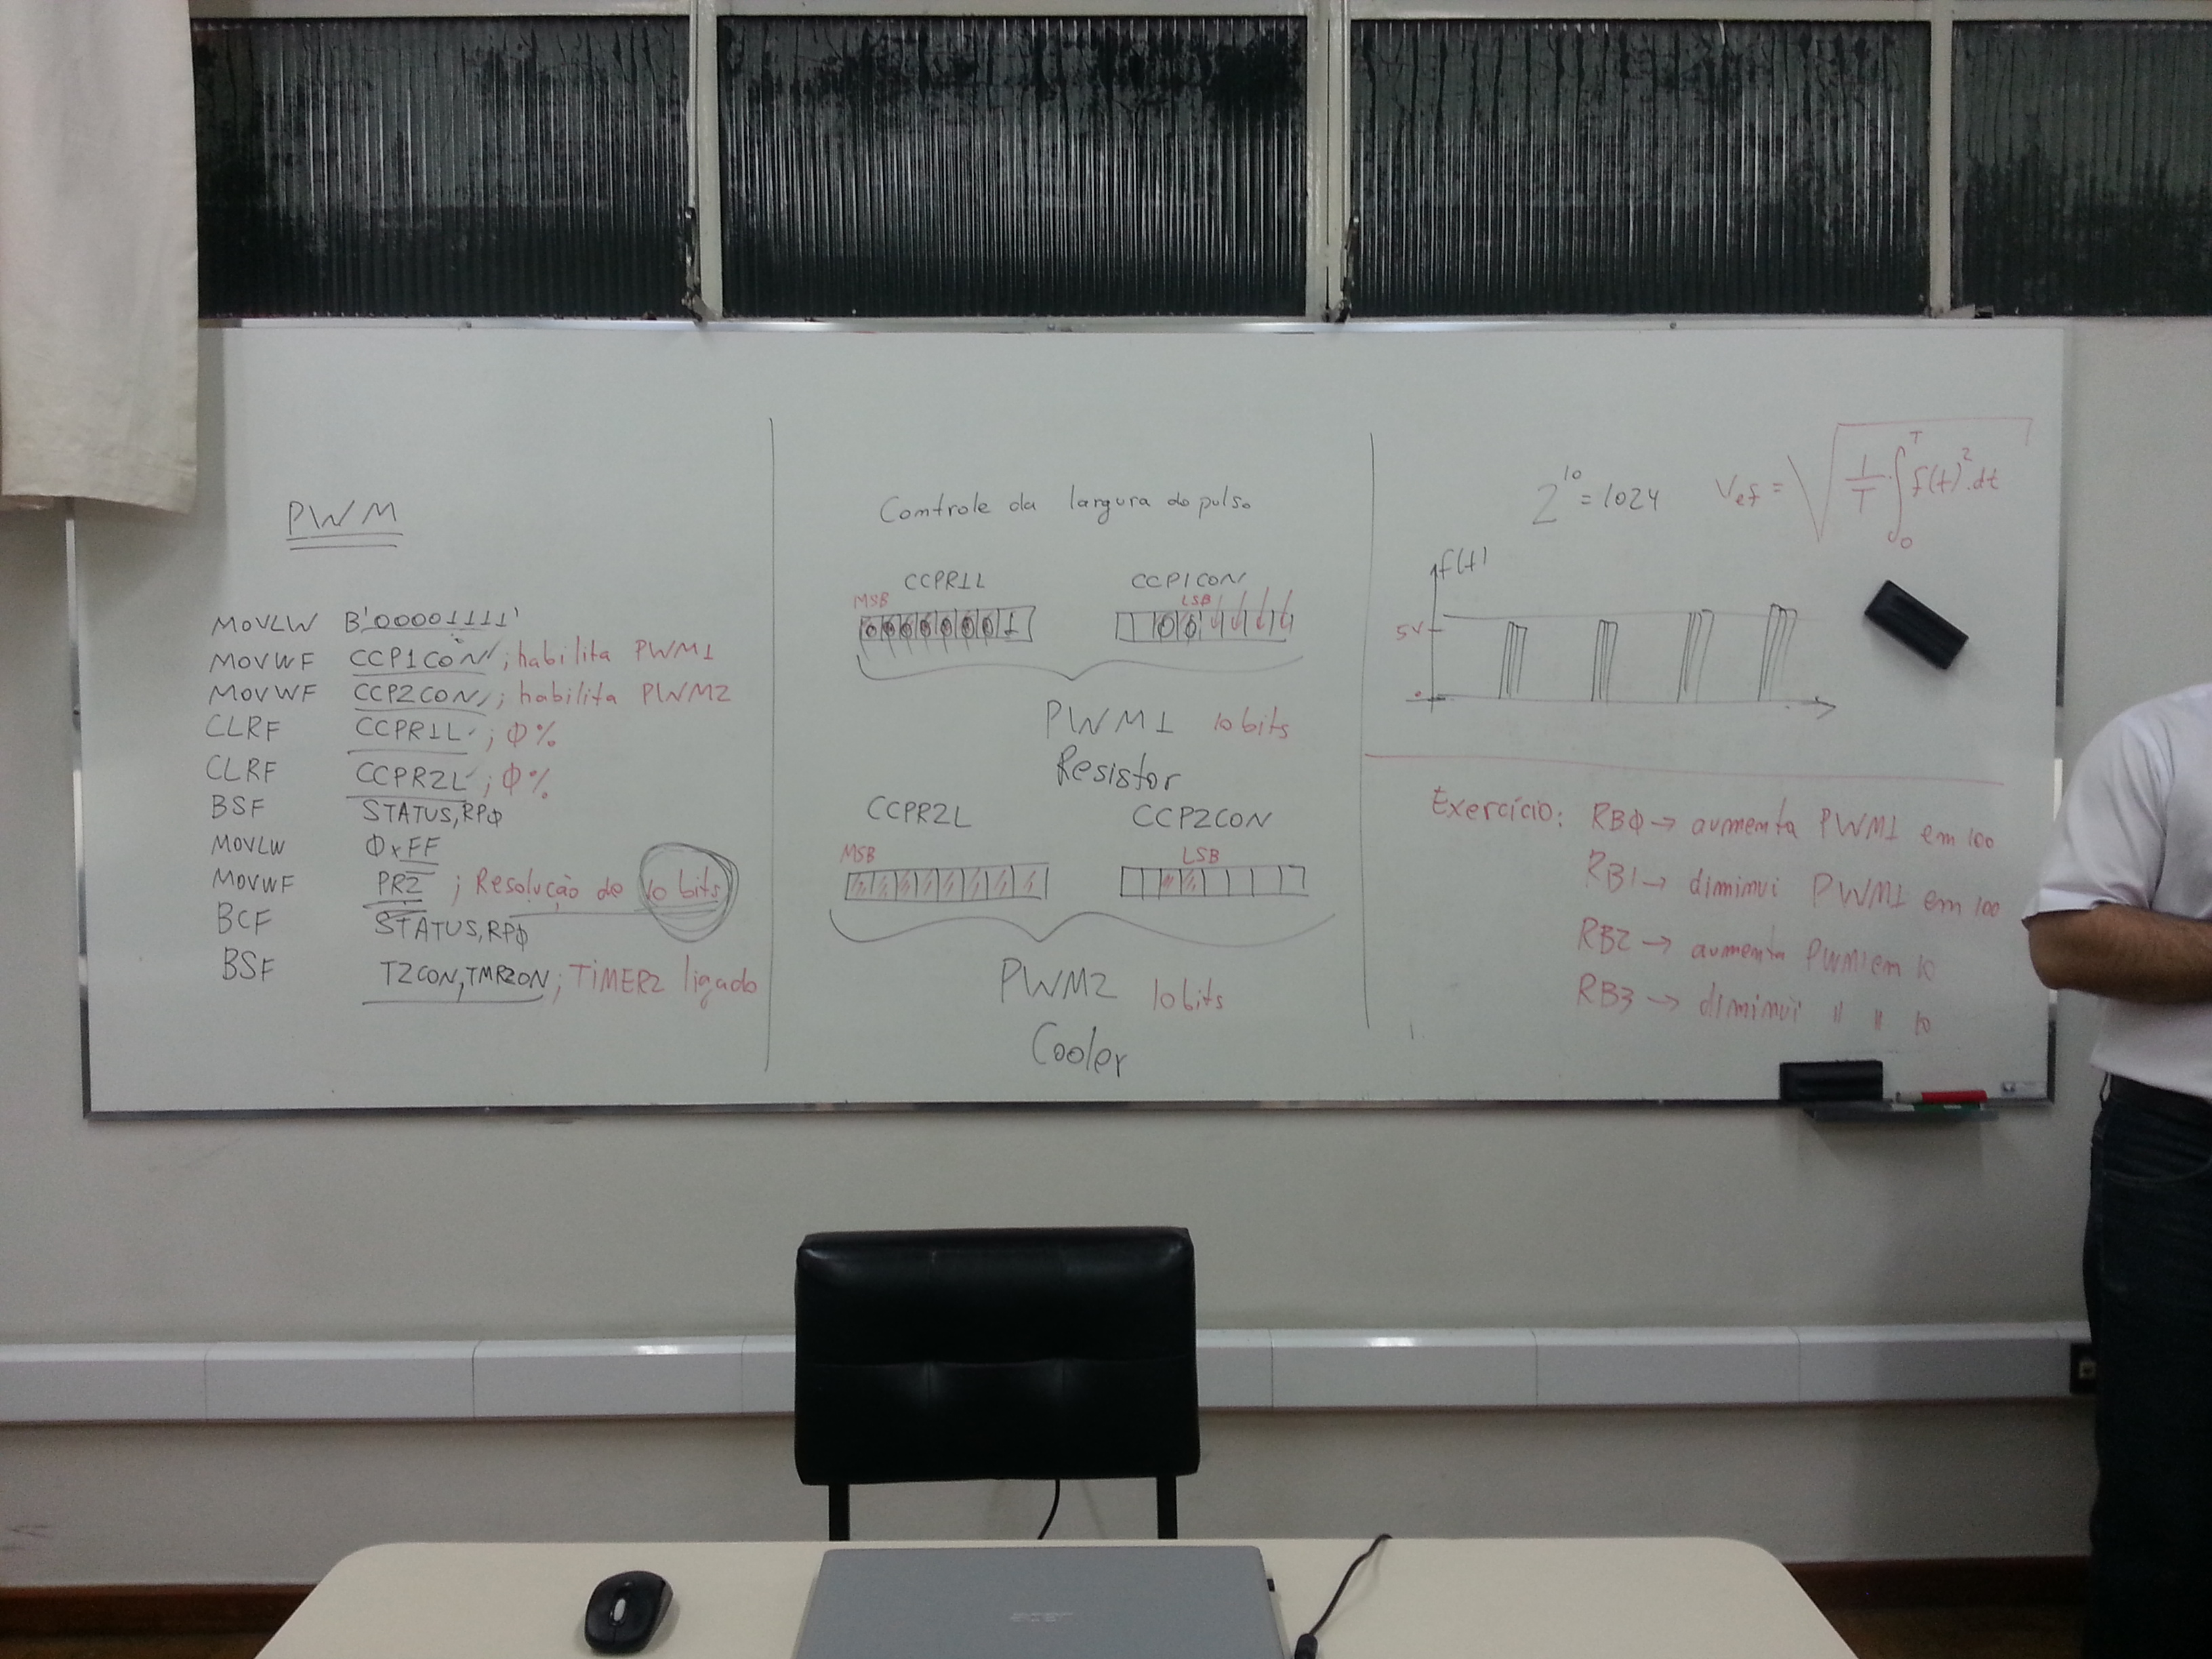 PWM
MOVLW B'00001111'
MOVWF CCP1CON ; habilita PWM1
MOVWF CCP2CON ; habilita PWM2
CLRF CCPR1L ; Φ%
CLRF CCPR2L ; Φ%
BSF STATUS,RPΦ
MOVLW ΦxFF
MOVWF PR2 ; Resolução de 10 bits
BCF STATUS,RPΦ
BSF T2CON,TMR2ON ; TiMER2 ligado
Controle da largura do pulso
CCPR1L CCP1CON
MSB LSB
0 0 0 0 0 0 0 1 0 0
PWM1 10 bits
Resistor
CCPR2L CCP2CON
MSB LSB
PWM2 10 bits
Cooler
2^10 = 1024 Vef = √(1/T ∫₀ᵀ f(t)².dt)
f(t)
5V
Exercício: RBΦ → aumenta PWM1 em 100
RB1 → diminui PWM1 em 100
RB2 → aumenta PWM1 em 10
RB3 → diminui " " 10